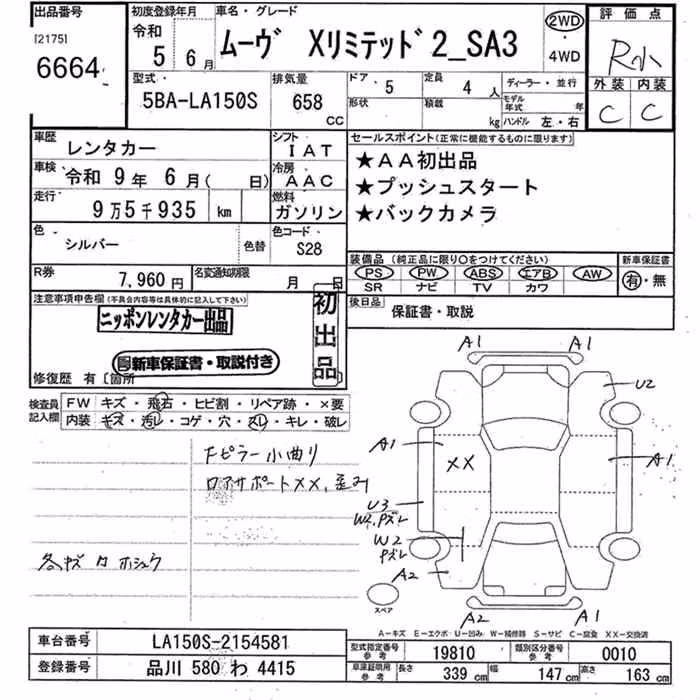 出品番号
[2175]
6664
初度登録年月
令和
5 6月
車名・グレード
ムーヴ Xリミテッド2_SA3
2WD
・
4WD
評価点
R小
外装 内装
C C
型式
5BA-LA150S
排気量
658
CC
ドア 5
定員 4 人
形状
積載 kg
ディーラー・並行
モデル年式 年
ハンドル 左・右
車歴
レンタカー
シフト
IAT
車検
令和 9年 6月( 日)
冷房
AAC
走行
9万5千935 km
燃料
ガソリン
色
シルバー
色替
色コード
S28
セールスポイント(正常に機能するものに限ります)
★AA初出品
★プッシュスタート
★バックカメラ
装備品 (純正品に限り○をつけてください)
PS PW ABS エアB AW
SR ナビ TV カワ
新車保証書
有・無
R券
7,960円
名変通知期限
月 日
後日品
保証書・取説
注意事項申告欄(不具合内容等は具体的に記入して下さい)
ニッポンレンタカー出品
新車保証書・取説付き
初出品
修復歴 有 [箇所
検査員記入欄
FW キズ・飛石・ヒビ割・リペア跡・×要
内装 キズ・汚レ・コゲ・穴・スレ・キレ・破レ
Fピラー小曲り
ロアサポートXX、歪み
各キズ
A1 A1
U2
A1
XX
A1
U3
W2,Pズレ
W2
Pズレ
A2
スペア
A2 A1
A−キズ E−エクボ・U−凹み W−補修跡 S−サビ C−腐食 XX−交換済
車台番号
LA150S-2154581
登録番号
品川 580 わ 4415
型式指定番号
参考
19810
類別区分番号
参考
0010
車庫証明用
参考
長さ 339 cm
幅 147 cm
高さ 163 cm